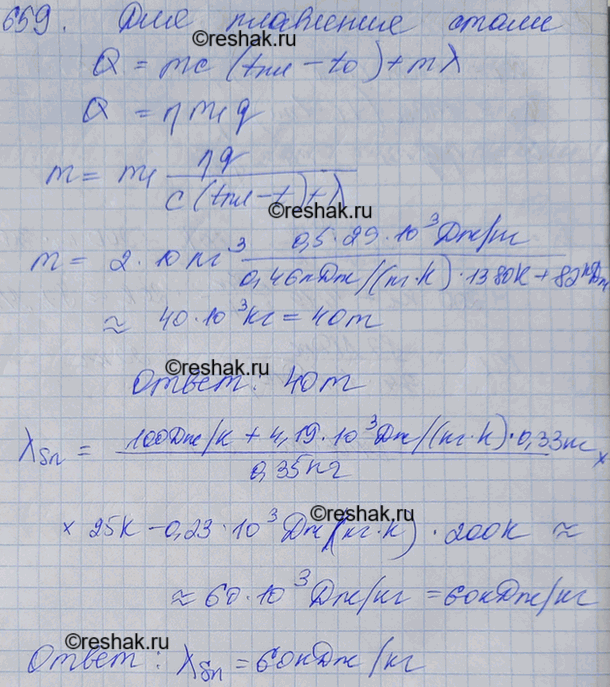 659. Для плавление стали
©reshak.ru
Q = mc (tпл – t0) + mλ
Q = η m1 q
m = m1 ηq / c (tпл – t) + λ
©reshak.ru
m = 2 · 10 кг ³ 0,5 · 29 · 10³ Дж/кг / 0,46 кДж/(кг·К) · 1380К + 82 кДж
≈ 40 · 10³ кг = 40т
©reshak.ru
Ответ: 40т
λSn = 100Дж/К + 4,19 · 10³ Дж/(кг·К) · 0,33кг / 0,35кг ×
× 25К – 0,23 · 10³ Дж/(кг·К) · 200К ≈
©reshak.ru
≈ 60 · 10³ Дж/кг = 60кДж/кг
©reshak.ru
Ответ: λSn = 60кДж/кг